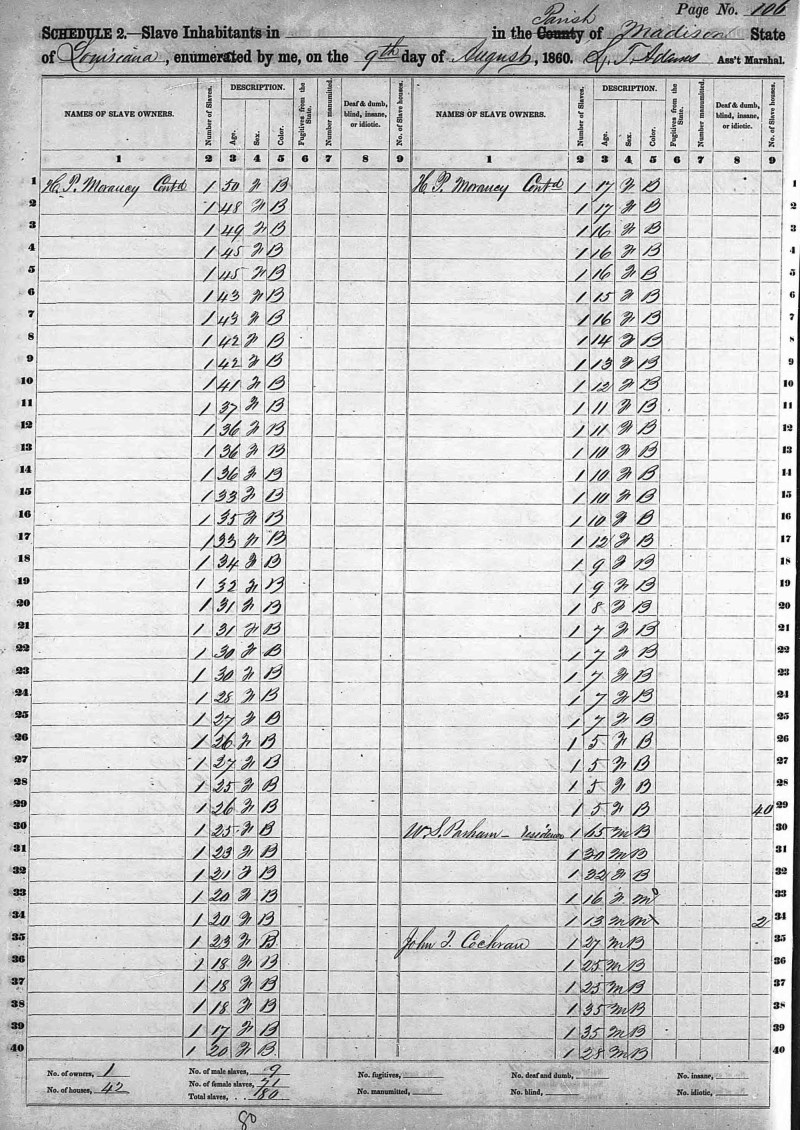 Page No. 106
SCHEDULE 2.—Slave Inhabitants in in the County Parish of Madison State
of Louisiana, enumerated by me, on the 9th day of August, 1860. L. T. Adams Ass't Marshal.
NAMES OF SLAVE OWNERS. Number of Slaves. DESCRIPTION. Age. Sex. Color. Fugitives from the State. Number manumitted. Deaf & dumb, blind, insane, or idiotic. No. of Slave houses. NAMES OF SLAVE OWNERS. Number of Slaves. DESCRIPTION. Age. Sex. Color. Fugitives from the State. Number manumitted. Deaf & dumb, blind, insane, or idiotic. No. of Slave houses.
1 2 3 4 5 6 7 8 9 1 2 3 4 5 6 7 8 9
1 H. P. Morancy Contd 1 50 F B H. P. Morancy Contd 1 17 F B 1
2 1 48 F B 1 17 F B 2
3 1 49 F B 1 16 F B 3
4 1 45 F B 1 16 F B 4
5 1 45 F B 1 16 F B 5
6 1 43 F B 1 15 F B 6
7 1 43 F B 1 16 F B 7
8 1 42 F B 1 14 F B 8
9 1 42 F B 1 13 F B 9
10 1 41 F B 1 12 F B 10
11 1 37 F B 1 11 F B 11
12 1 36 F B 1 11 F B 12
13 1 36 F B 1 10 F B 13
14 1 36 F B 1 10 F B 14
15 1 33 F B 1 10 F B 15
16 1 35 F B 1 10 F B 16
17 1 33 F B 1 12 F B 17
18 1 34 F B 1 9 F B 18
19 1 32 F B 1 9 F B 19
20 1 31 F B 1 8 F B 20
21 1 31 F B 1 7 F B 21
22 1 30 F B 1 7 F B 22
23 1 30 F B 1 7 F B 23
24 1 28 F B 1 7 F B 24
25 1 27 F B 1 7 F B 25
26 1 26 F B 1 5 F B 26
27 1 27 F B 1 5 F B 27
28 1 25 F B 1 5 F B 28
29 1 26 F B 1 5 F B 40 29
30 1 25 F B W. S. Parham – residence 1 65 m B 30
31 1 23 F B 1 30 m B 31
32 1 21 F B 1 32 F B 32
33 1 20 F B 1 16 F M 33
34 1 20 F B 1 13 m M 2 34
35 1 23 F B John T. Cochran 1 27 m B 35
36 1 18 F B 1 25 m B 36
37 1 18 F B 1 25 m B 37
38 1 18 F B 1 35 m B 38
39 1 17 F B 1 35 m B 39
40 1 20 F B 1 28 m B 40
No. of owners, 1 No. of male slaves, 9 No. fugitives, No. deaf and dumb, No. insane,
No. of houses, 42 No. of female slaves, 71 No. manumitted, No. blind, No. idiotic,
Total slaves, 180
80